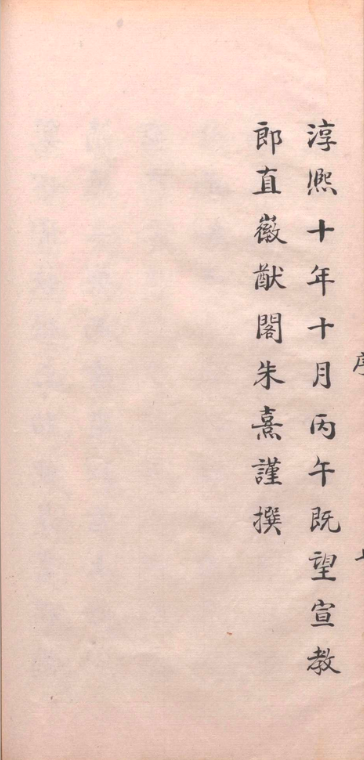 序
淳熙十年十月丙午既望宣教
郎直徽猷閣朱熹謹撰